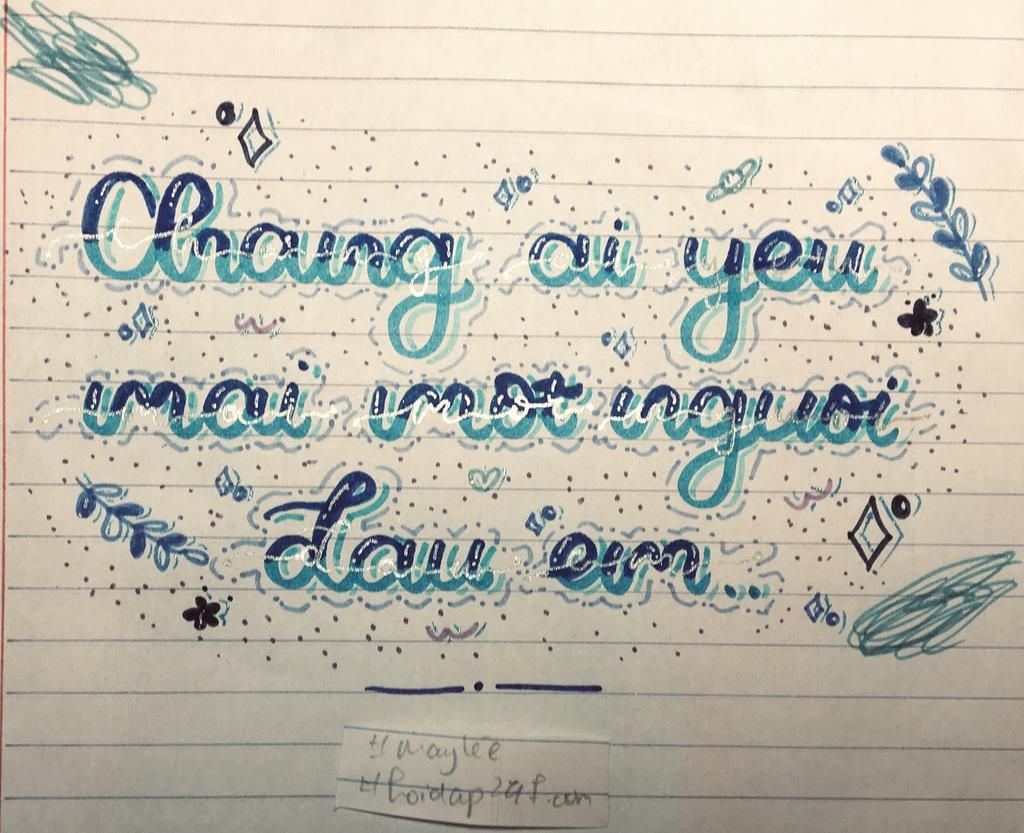 Chang ai yeu
mai mot nguoi
Dau em...
#maylee
#hoidap247.com